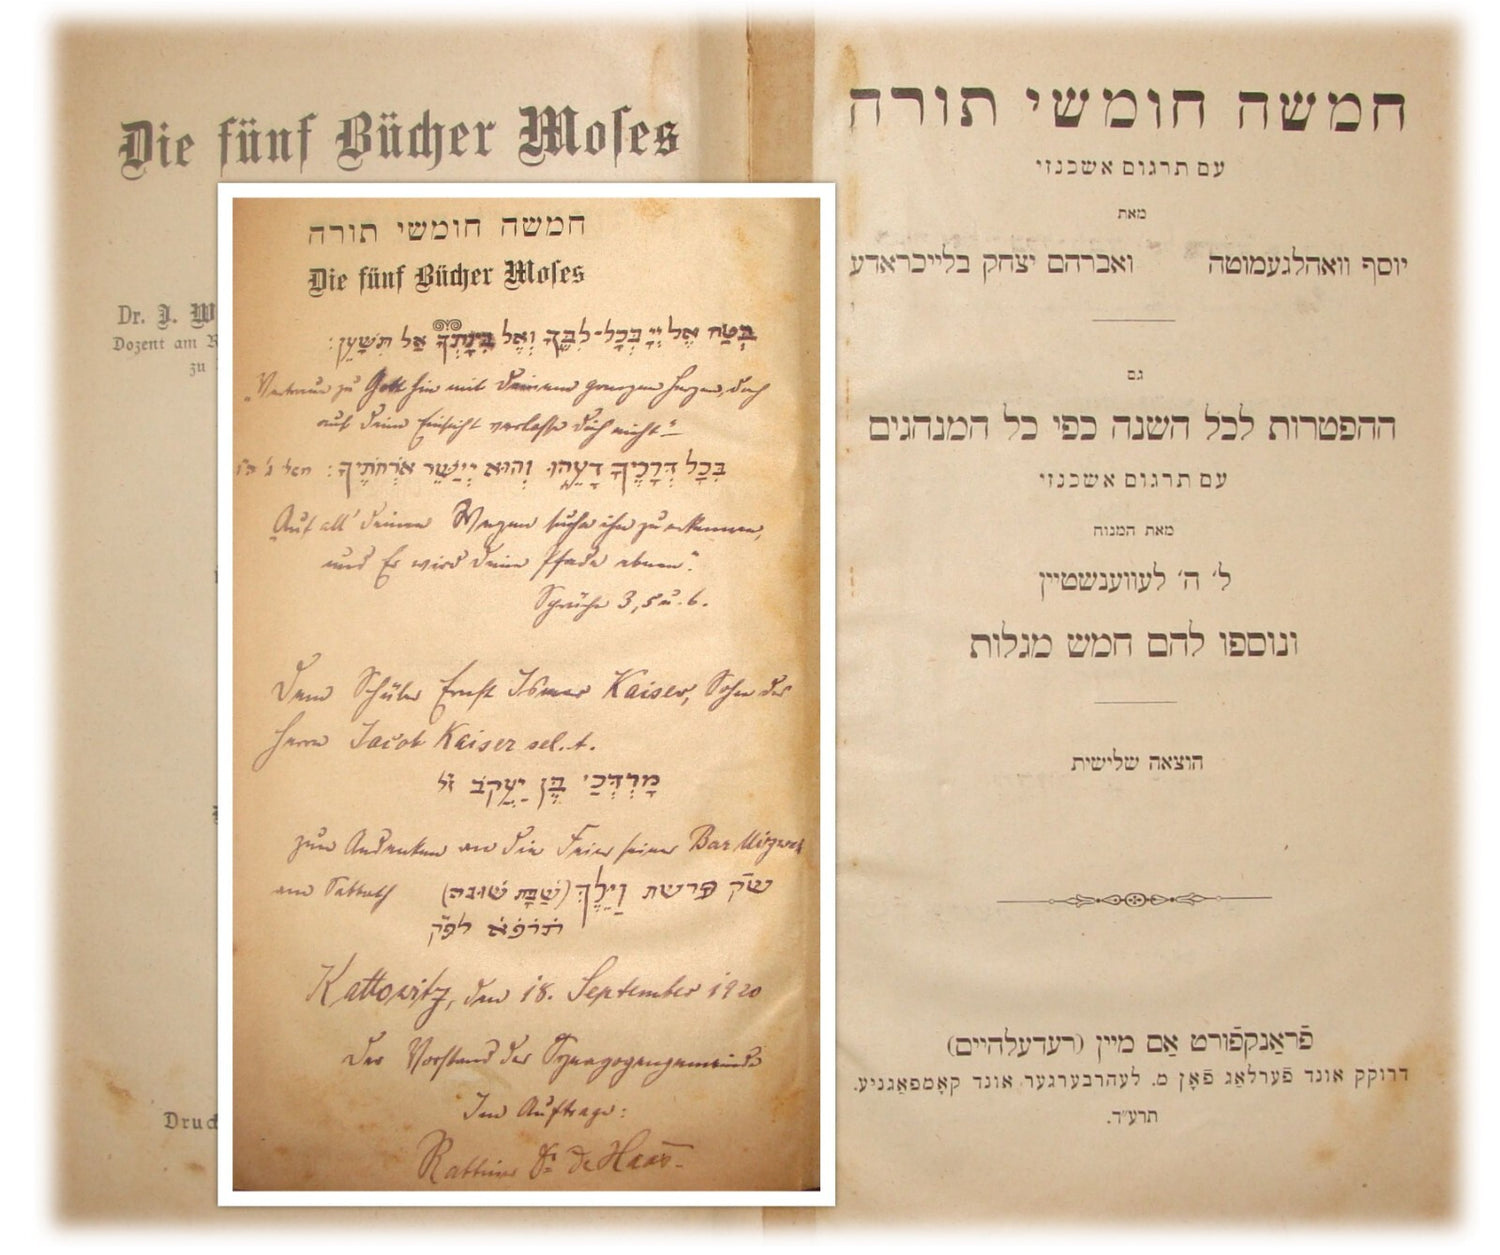 Die fünf Bücher Moses
Dr. J. W
Dozent am R
zu
Druck
חמשה חומשי תורה
Die fünf Bücher Moses
בְּטַח אֶל יְיָ בְּכָל-לִבֶּךָ וְאֶל בִּינָתְךָ אַל תִּשָּׁעֵן:
„Vertraue zu Gott hin mit deinem ganzen Herzen, doch
auf deine Einsicht verlasse dich nicht“
בְּכָל דְּרָכֶיךָ דָעֵהוּ וְהוּא יְיַשֵּׁר אֹרְחֹתֶיךָ:
„Auf all' deinen Wegen suche ihn zu erkennen,
und Er wird deine Pfade ebnen“.
Sprüche 3, 5 u. 6.
Dem Schüler Ernst Ismar Kaiser, Sohn des
Herrn Jacob Kaiser sel. A.
מָרְדְּכַי בֶּן יַעֲקֹב ז״ל
zum Andenken an die Feier seiner Bar Mizwah
am Sabbath ש״ק פרשת וַיֵּלֶךְ (שַׁבָּת שׁוּבה)
תרפא לפ״ק
Kattowitz, den 18. September 1920
Der Vorstand der Synagogengemeinde
Im Auftrage:
Rabbiner Dr. de Haas.
חמשה חומשי תורה
עם תרגום אשכנזי
מאת
יוסף וואהלגעמוטה ואברהם יצחק בלייכראדע
גם
ההפטרות לכל השנה כפי כל המנהגים
עם תרגום אשכנזי
מאת המנוח
ל׳ ה׳ לעווענשטיין
ונוספו להם חמש מגלות
הוצאה שלישית
פֿראַנקפֿורט אַם מיין (רעדעלהיים)
דרוקק אונד פֿערלאַג פֿאָן מ. לעהרבערגער אונד קאָמפּאַגניע.
תרע״ד.